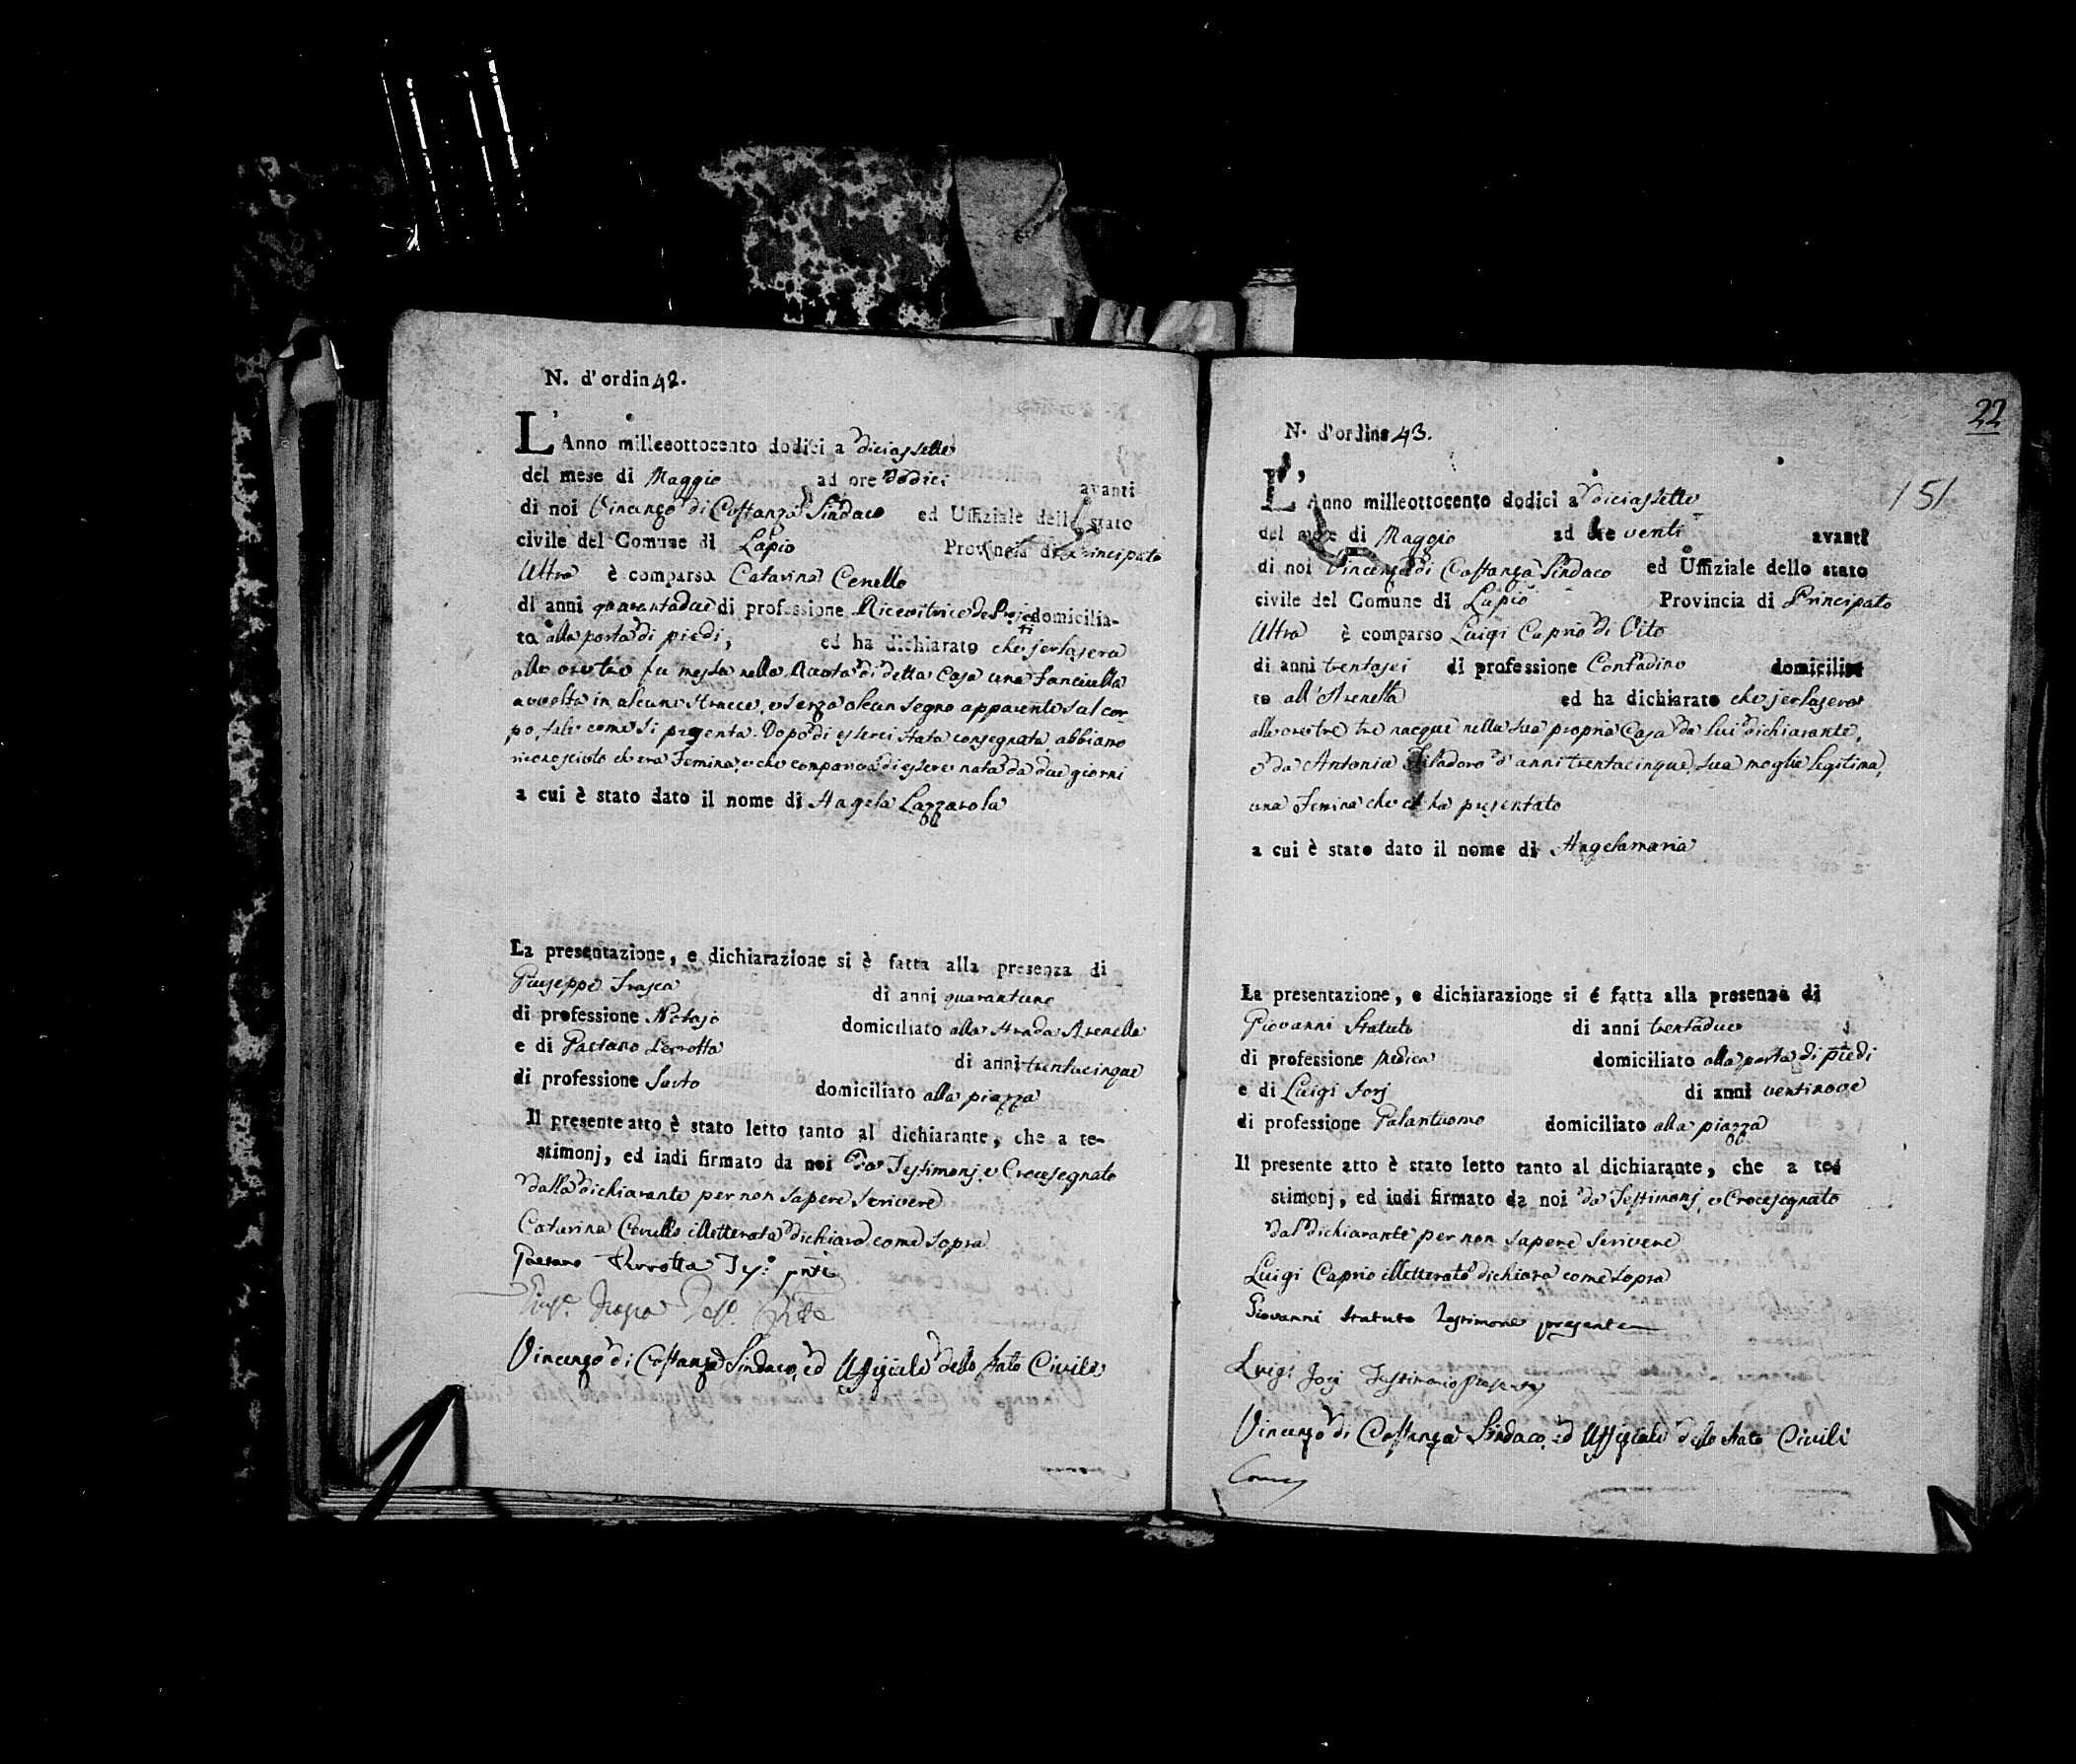 N. d'ordin 42.
L'Anno milleottocento dodici a diciassette
del mese di Maggio ad ore dodici avanti
di noi Vincenzo di Costanza Sindaco ed Uffiziale dello stato
civile del Comune di Lapio Provincia di Principato
Ultra è comparsa Catarina Cenello
di anni quarantadue di professione Ricevitrice de Projetti domicilia-
ta alla porta di piedi, ed ha dichiarato che jerlasera
alle ore tre fu messa nella Ruota di detta Casa una Fanciulla
avvolta in alcune stracce, e senza alcun segno apparente sul cor-
po, tale come si presenta. Dopo di esserci stata consegnata, abbiamo
riconosciuto ch'era Femina, e che compariva di essere nata da due giorni
a cui è stato dato il nome di Angela Lazzarola
La presentazione, e dichiarazione si è fatta alla presenza di
Giuseppe Frasca di anni quarantuno
di professione Notajo domiciliato alla strada Arenella
e di Gaetano Perrotta di anni trentacinque
di professione Sarto domiciliato alla piazza
Il presente atto è stato letto tanto al dichiarante, che a te-
stimonj, ed indi firmato da noi da Testimonj, e Crocesegnato
dalla dichiarante per non sapere scrivere
Catarina Cenello illetterata dichiara come sopra
Gaetano Perrotta
Vincenzo di Costanza Sindaco, ed Uffiziale dello stato Civile
22
151
N. d'ordine 43.
L'Anno milleottocento dodici a diciassette
del mese di Maggio ad ore venti avanti
di noi Vincenzo di Costanza Sindaco ed Uffiziale dello stato
civile del Comune di Lapio Provincia di Principato
Ultra è comparso Luigi Caprio di Vito
di anni trentasei di professione Contadino domicilia-
to all'Arenella ed ha dichiarato che jerlasera
alle ore tre nacque nella sua propria Casa da lui dichiarante,
e da Antonia Filadoro d'anni trentacinque, sua moglie legitima,
una Femina che ci ha presentato
a cui è stato dato il nome di Angelamaria
La presentazione, e dichiarazione si é fatta alla presenza di
Giovanni Statuto di anni trentadue
di professione Medico domiciliato alla porta di piedi
e di Luigi Jorj di anni ventinove
di professione Galantuomo domiciliato alla piazza
Il presente atto è stato letto tanto al dichiarante, che a te-
stimonj, ed indi firmato da noi da Testimonj, e Crocesegnato
dal dichiarante per non sapere scrivere
Luigi Caprio illetterato dichiara come sopra
Giovanni Statuto Testimone presente
Luigi Jorj Testimonio presente
Vincenzo di Costanza Sindaco, ed Uffiziale dello stato Civile